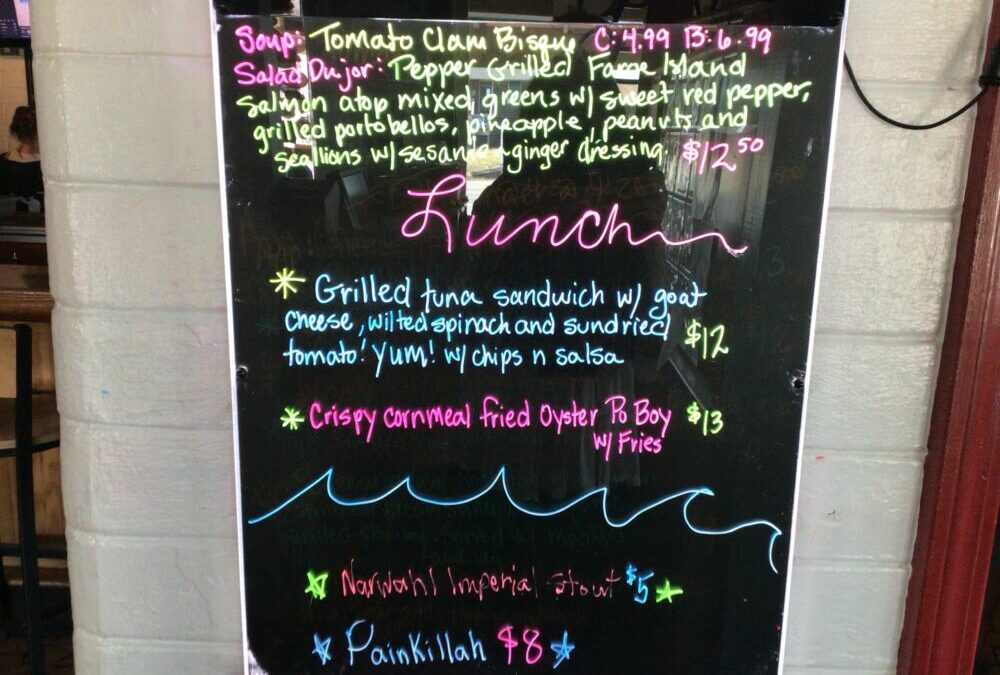 Soup: Tomato Clam Bisque C: 4.99 B: 6.99
Salad Dujor: Pepper Grilled Faroe Island
Salmon atop mixed greens w/ sweet red pepper,
grilled portobellos, pineapple, peanuts and
scallions w/ sesame-ginger dressing. $12.50
Lunch
Grilled tuna sandwich w/ goat
cheese, wilted spinach and sundried
tomato! Yum! w/ chips n salsa $12
Crispy cornmeal fried Oyster Po Boy $13
w/ Fries
Narwahl Imperial Stout $5
PainKillah $8